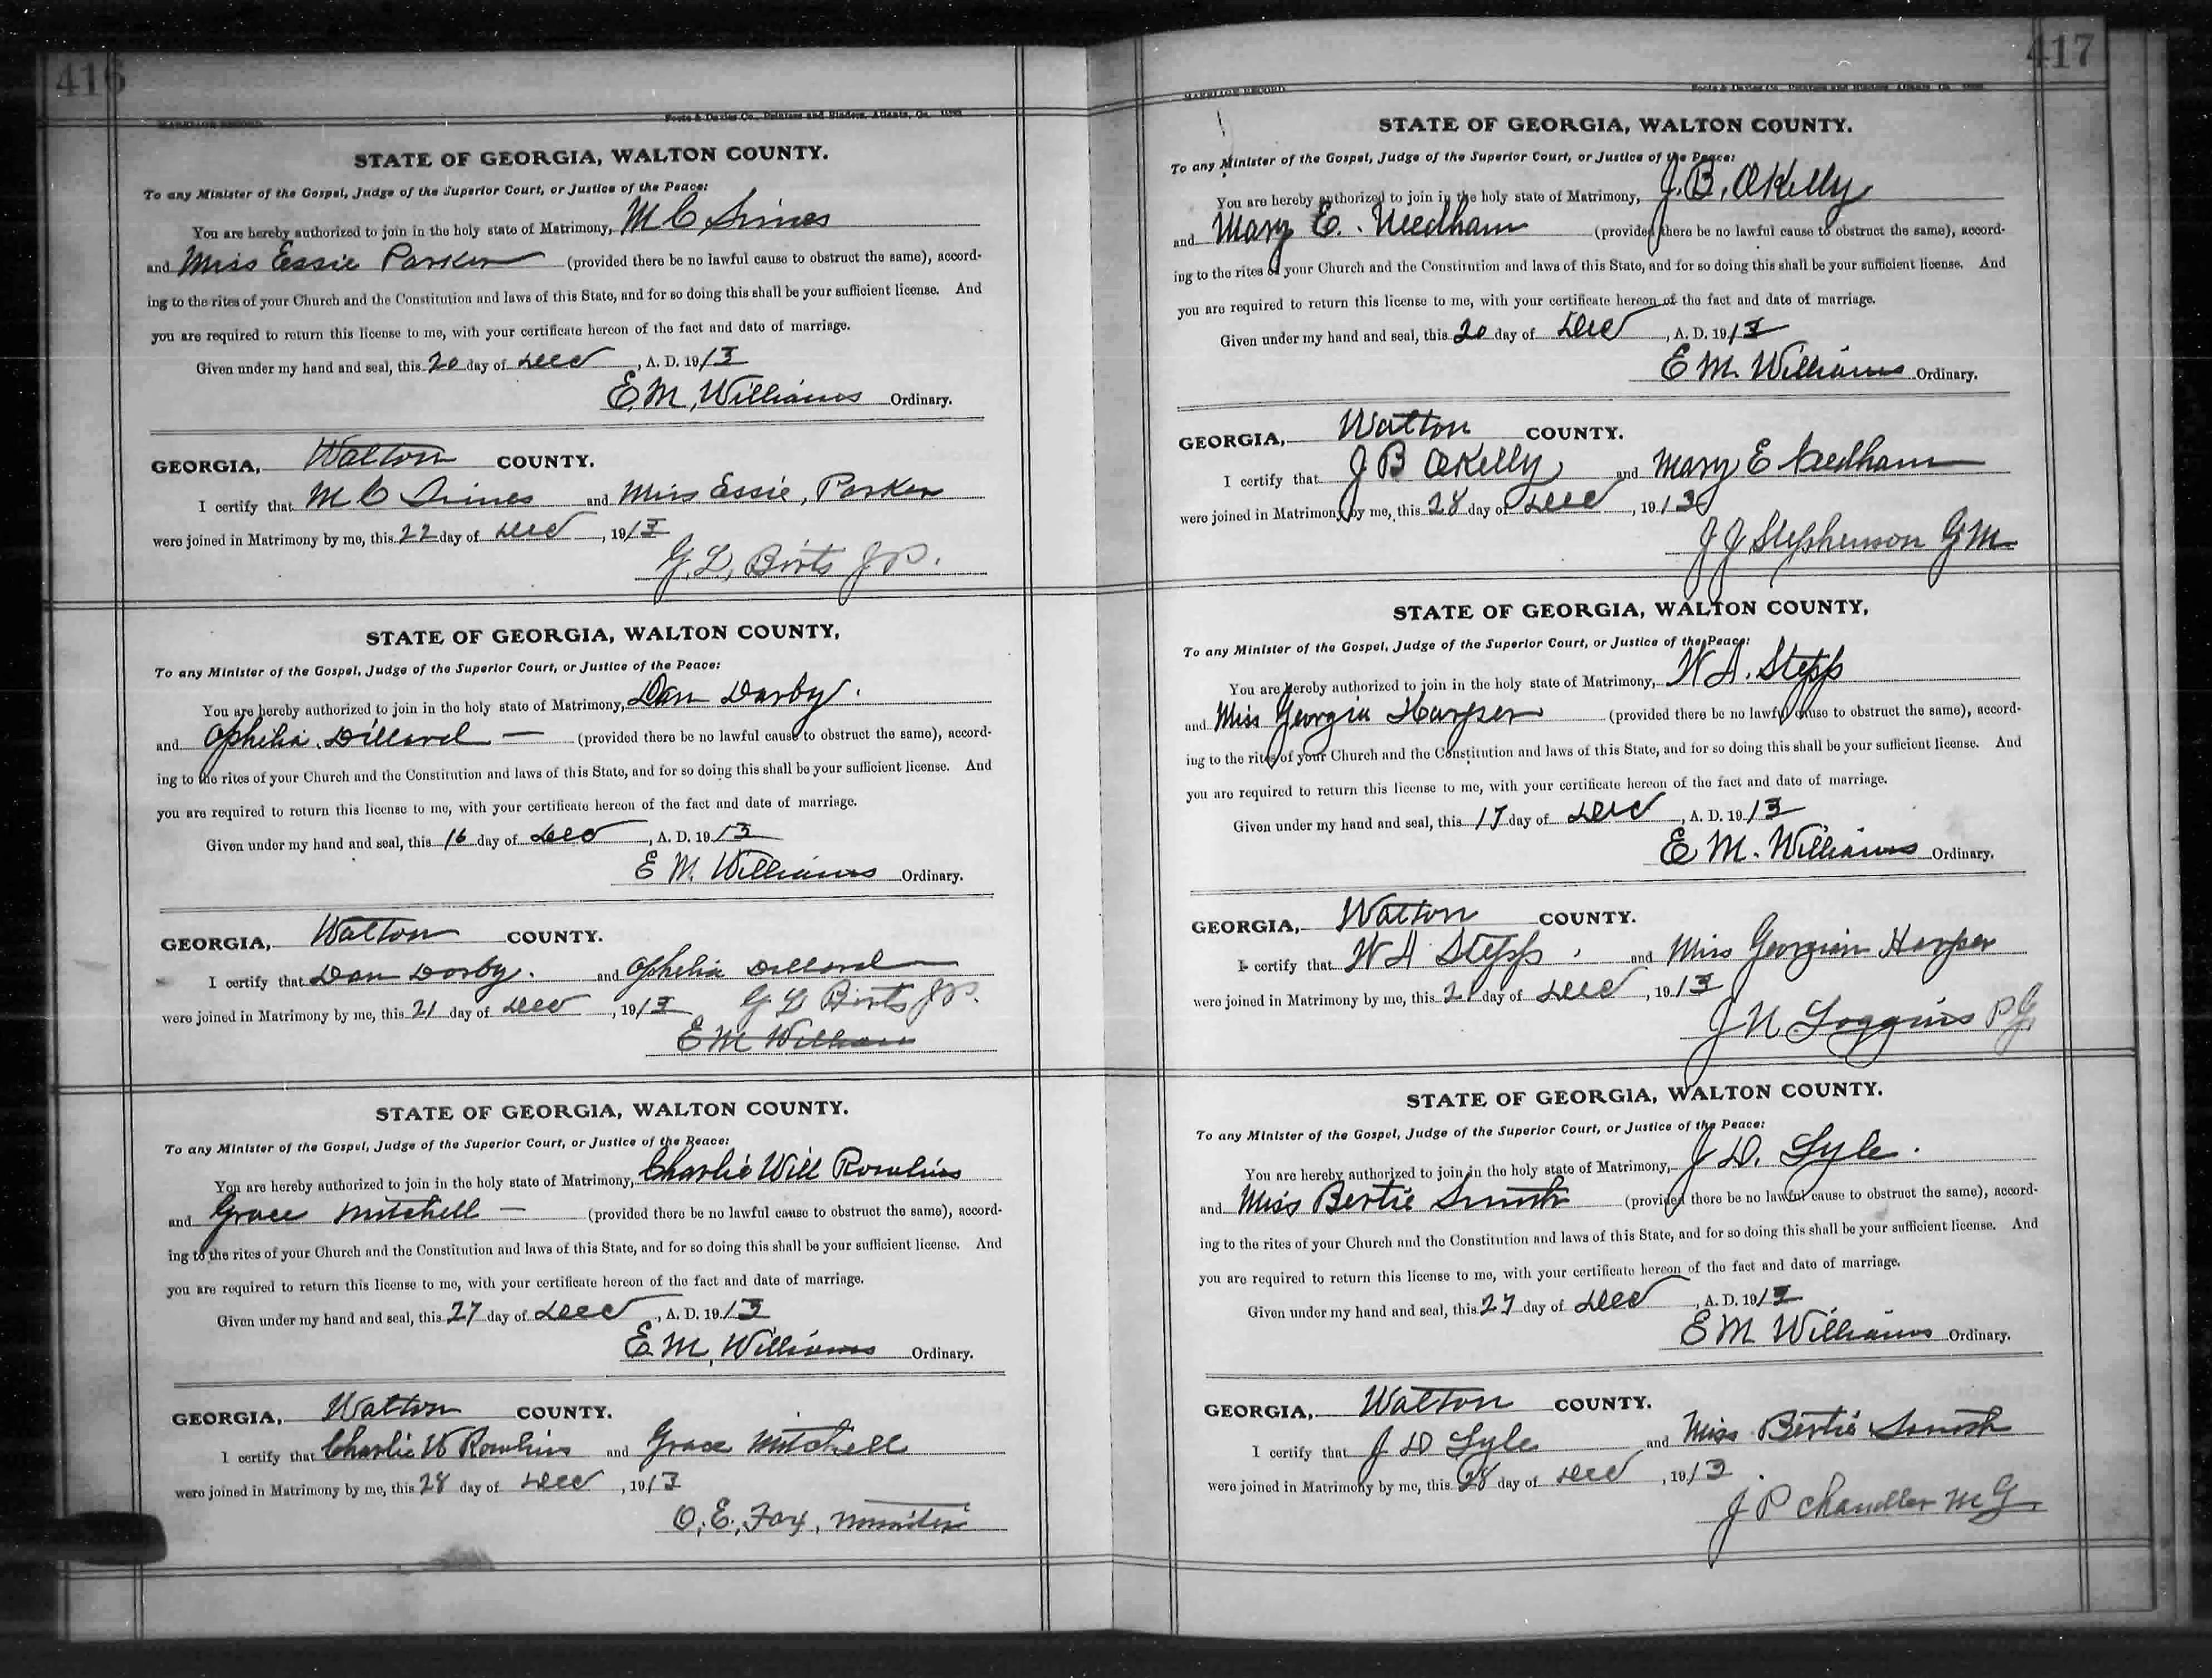 416
MARRIAGE RECORD Foote & Davies Co., Printers and Binders, Atlanta, Ga.
STATE OF GEORGIA, WALTON COUNTY.
To any Minister of the Gospel, Judge of the Superior Court, or Justice of the Peace:
You are hereby authorized to join in the holy state of Matrimony, M C Simes
and Miss Essie Parker (provided there be no lawful cause to obstruct the same), accord-
ing to the rites of your Church and the Constitution and laws of this State, and for so doing this shall be your sufficient license. And
you are required to return this license to me, with your certificate hereon of the fact and date of marriage.
Given under my hand and seal, this 20 day of Dec, A. D. 1913
E. M. Williams Ordinary.
GEORGIA, Walton COUNTY.
I certify that M C Simes and Miss Essie, Parker
were joined in Matrimony by me, this 22 day of Dec, 1913
G. L. Birts J P.
STATE OF GEORGIA, WALTON COUNTY,
To any Minister of the Gospel, Judge of the Superior Court, or Justice of the Peace:
You are hereby authorized to join in the holy state of Matrimony, Dan Darby.
and Ophelia Dillard — (provided there be no lawful cause to obstruct the same), accord-
ing to the rites of your Church and the Constitution and laws of this State, and for so doing this shall be your sufficient license. And
you are required to return this license to me, with your certificate hereon of the fact and date of marriage.
Given under my hand and seal, this 16 day of Dec, A. D. 1913
E M. Williams Ordinary.
GEORGIA, Walton COUNTY.
I certify that Dan Darby. and Ophelia Dillard
were joined in Matrimony by me, this 21 day of Dec, 1913 G L Birts J P.
E M William
STATE OF GEORGIA, WALTON COUNTY.
To any Minister of the Gospel, Judge of the Superior Court, or Justice of the Peace:
You are hereby authorized to join in the holy state of Matrimony, Charlie Will Rawlins
and Grace Mitchell — (provided there be no lawful cause to obstruct the same), accord-
ing to the rites of your Church and the Constitution and laws of this State, and for so doing this shall be your sufficient license. And
you are required to return this license to me, with your certificate hereon of the fact and date of marriage.
Given under my hand and seal, this 27 day of Dec, A. D. 1913
E. M. Williams Ordinary.
GEORGIA, Walton COUNTY.
I certify that Charlie W Rawlins and Grace Mitchell
were joined in Matrimony by me, this 28 day of Dec, 1913
O. E. Fox, minister
417
MARRIAGE RECORD Foote & Davies Co., Printers and Binders, Atlanta, Ga.
STATE OF GEORGIA, WALTON COUNTY.
To any Minister of the Gospel, Judge of the Superior Court, or Justice of the Peace:
You are hereby authorized to join in the holy state of Matrimony, J. B. OKelly
and Mary E. Needham (provided there be no lawful cause to obstruct the same), accord-
ing to the rites of your Church and the Constitution and laws of this State, and for so doing this shall be your sufficient license. And
you are required to return this license to me, with your certificate hereon of the fact and date of marriage.
Given under my hand and seal, this 20 day of Dec, A. D. 1913
E M. Williams Ordinary.
GEORGIA, Walton COUNTY.
I certify that J B OKelly and Mary E Needham
were joined in Matrimony by me, this 28 day of Dec, 1913
J J Stephenson G M
STATE OF GEORGIA, WALTON COUNTY,
To any Minister of the Gospel, Judge of the Superior Court, or Justice of the Peace:
You are hereby authorized to join in the holy state of Matrimony, W A. Stepp
and Miss Georgia Harper (provided there be no lawful cause to obstruct the same), accord-
ing to the rites of your Church and the Constitution and laws of this State, and for so doing this shall be your sufficient license. And
you are required to return this license to me, with your certificate hereon of the fact and date of marriage.
Given under my hand and seal, this 17 day of Dec, A. D. 1913
E M. Williams Ordinary.
GEORGIA, Walton COUNTY.
I certify that W A Stepp, and Miss Georgian Harper
were joined in Matrimony by me, this 21 day of Dec, 1913
J N Loggins P G,
STATE OF GEORGIA, WALTON COUNTY.
To any Minister of the Gospel, Judge of the Superior Court, or Justice of the Peace:
You are hereby authorized to join in the holy state of Matrimony, J D. Lyle.
and Miss Bertie Smith (provided there be no lawful cause to obstruct the same), accord-
ing to the rites of your Church and the Constitution and laws of this State, and for so doing this shall be your sufficient license. And
you are required to return this license to me, with your certificate hereon of the fact and date of marriage.
Given under my hand and seal, this 27 day of Dec, A. D. 1913
E M Williams Ordinary.
GEORGIA, Walton COUNTY.
I certify that J D Lyle and Miss Bertie Smith
were joined in Matrimony by me, this 28 day of Dec, 1913
J P Chandler M G,